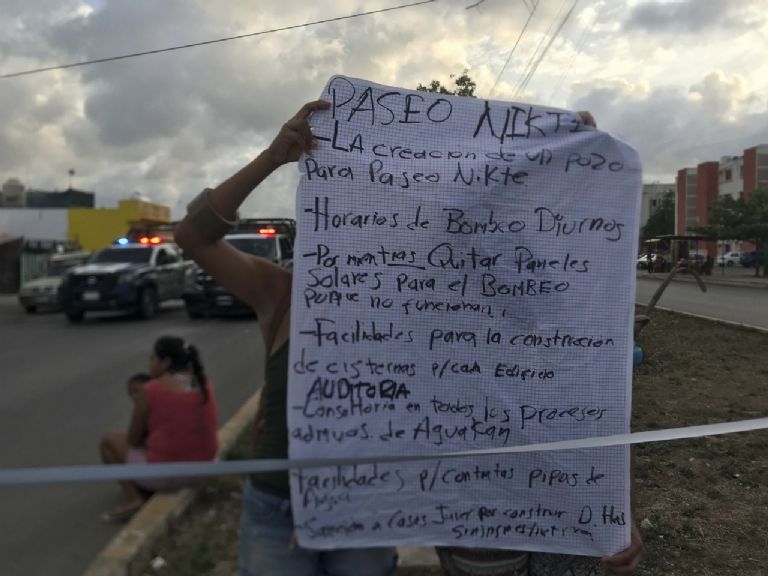 PASEO NIKTE
-LA creacion de un pozo
Para Paseo Nikte
-Horarios de Bombeo Diurnos
-Por mientras Quitar Paneles
Solares Para el BOMBEO
porque no funcionan
-Facilidades para la construcion
de cisternas p/cada Edificio
AUDITORIA
-Consultoria en todos los Procesos
admvos. de Aguakan
facilidades p/contratas pipas de
Agua
a Casas por construir D.